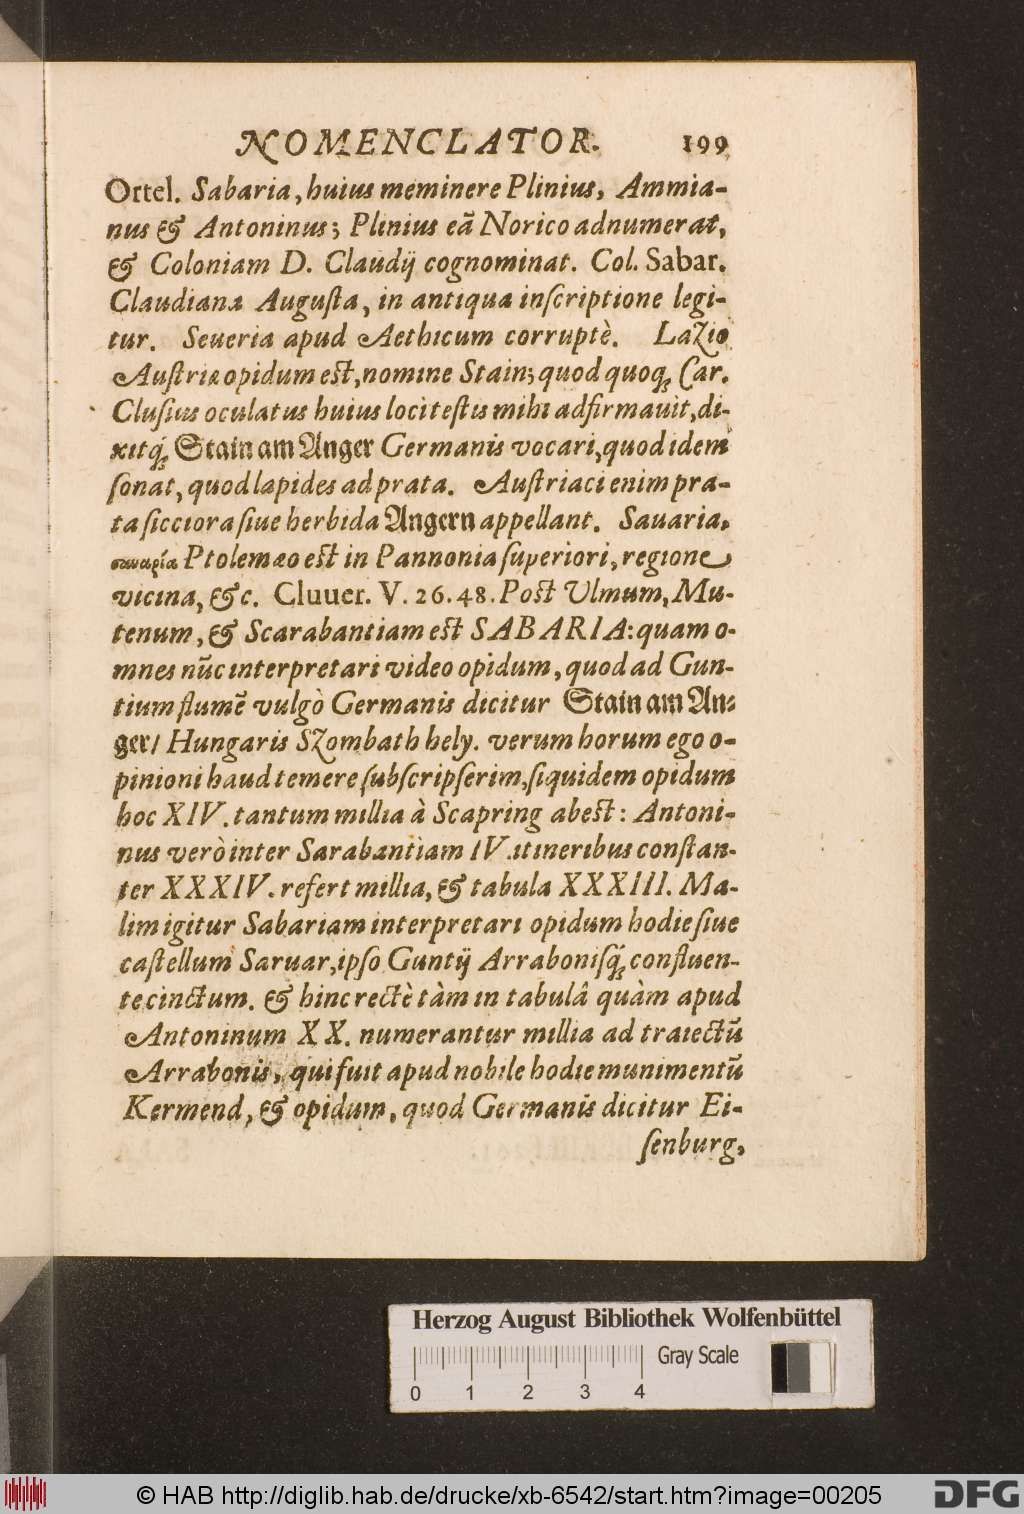 NOMENCLATOR. 199
Ortel. Sabaria, huius meminere Plinius, Ammia-
nus & Antoninus; Plinius eā Norico adnumerat,
& Coloniam D. Claudij cognominat. Col. Sabar.
Claudiana Augusta, in antiqua inscriptione legi-
tur. Seueria apud Aethicum corruptè. Lazio
Austriæ opidum est, nomine Stain; quod quoq; Car.
Clusius oculatus huius loci testis mihi adfirmauit, di-
xitq́; Stain am Anger Germanis vocari, quod idem
sonat, quod lapides ad prata. Austriaci enim pra-
ta sicciora siue herbida Angern appellant. Sauaria,
σαουαρία Ptolemæo est in Pannonia superiori, regione
vicina, &c. Cluuer. V. 26. 48. Post Ulmum, Mu-
tenum, & Scarabantiam est SABARIA: quam o-
mnes nūc interpretari video opidum, quod ad Gun-
tium flumē vulgò Germanis dicitur Stain am An-
ger/ Hungaris Szombath hely. verum horum ego o-
pinioni haud temere subscripserim, siquidem opidum
hoc XIV. tantum millia à Scapring abest: Antoni-
nus verò inter Sarabantiam IV. itineribus constan-
ter XXXIV. refert millia, & tabula XXXIII. Ma-
lim igitur Sabariam interpretari opidum hodie siue
castellum Saruar, ipso Guntij Arrabonisq́; confluen-
te cinctum. & hinc rectè tàm in tabulâ quàm apud
Antoninum XX. numerantur millia ad traiectū
Arrabonis, qui fuit apud nobile hodie munimentū
Kermend, & opidum, quod Germanis dicitur Ei-
senburg,
Herzog August Bibliothek Wolfenbüttel
Gray Scale
0 1 2 3 4
© HAB http://diglib.hab.de/drucke/xb-6542/start.htm?image=00205
DFG